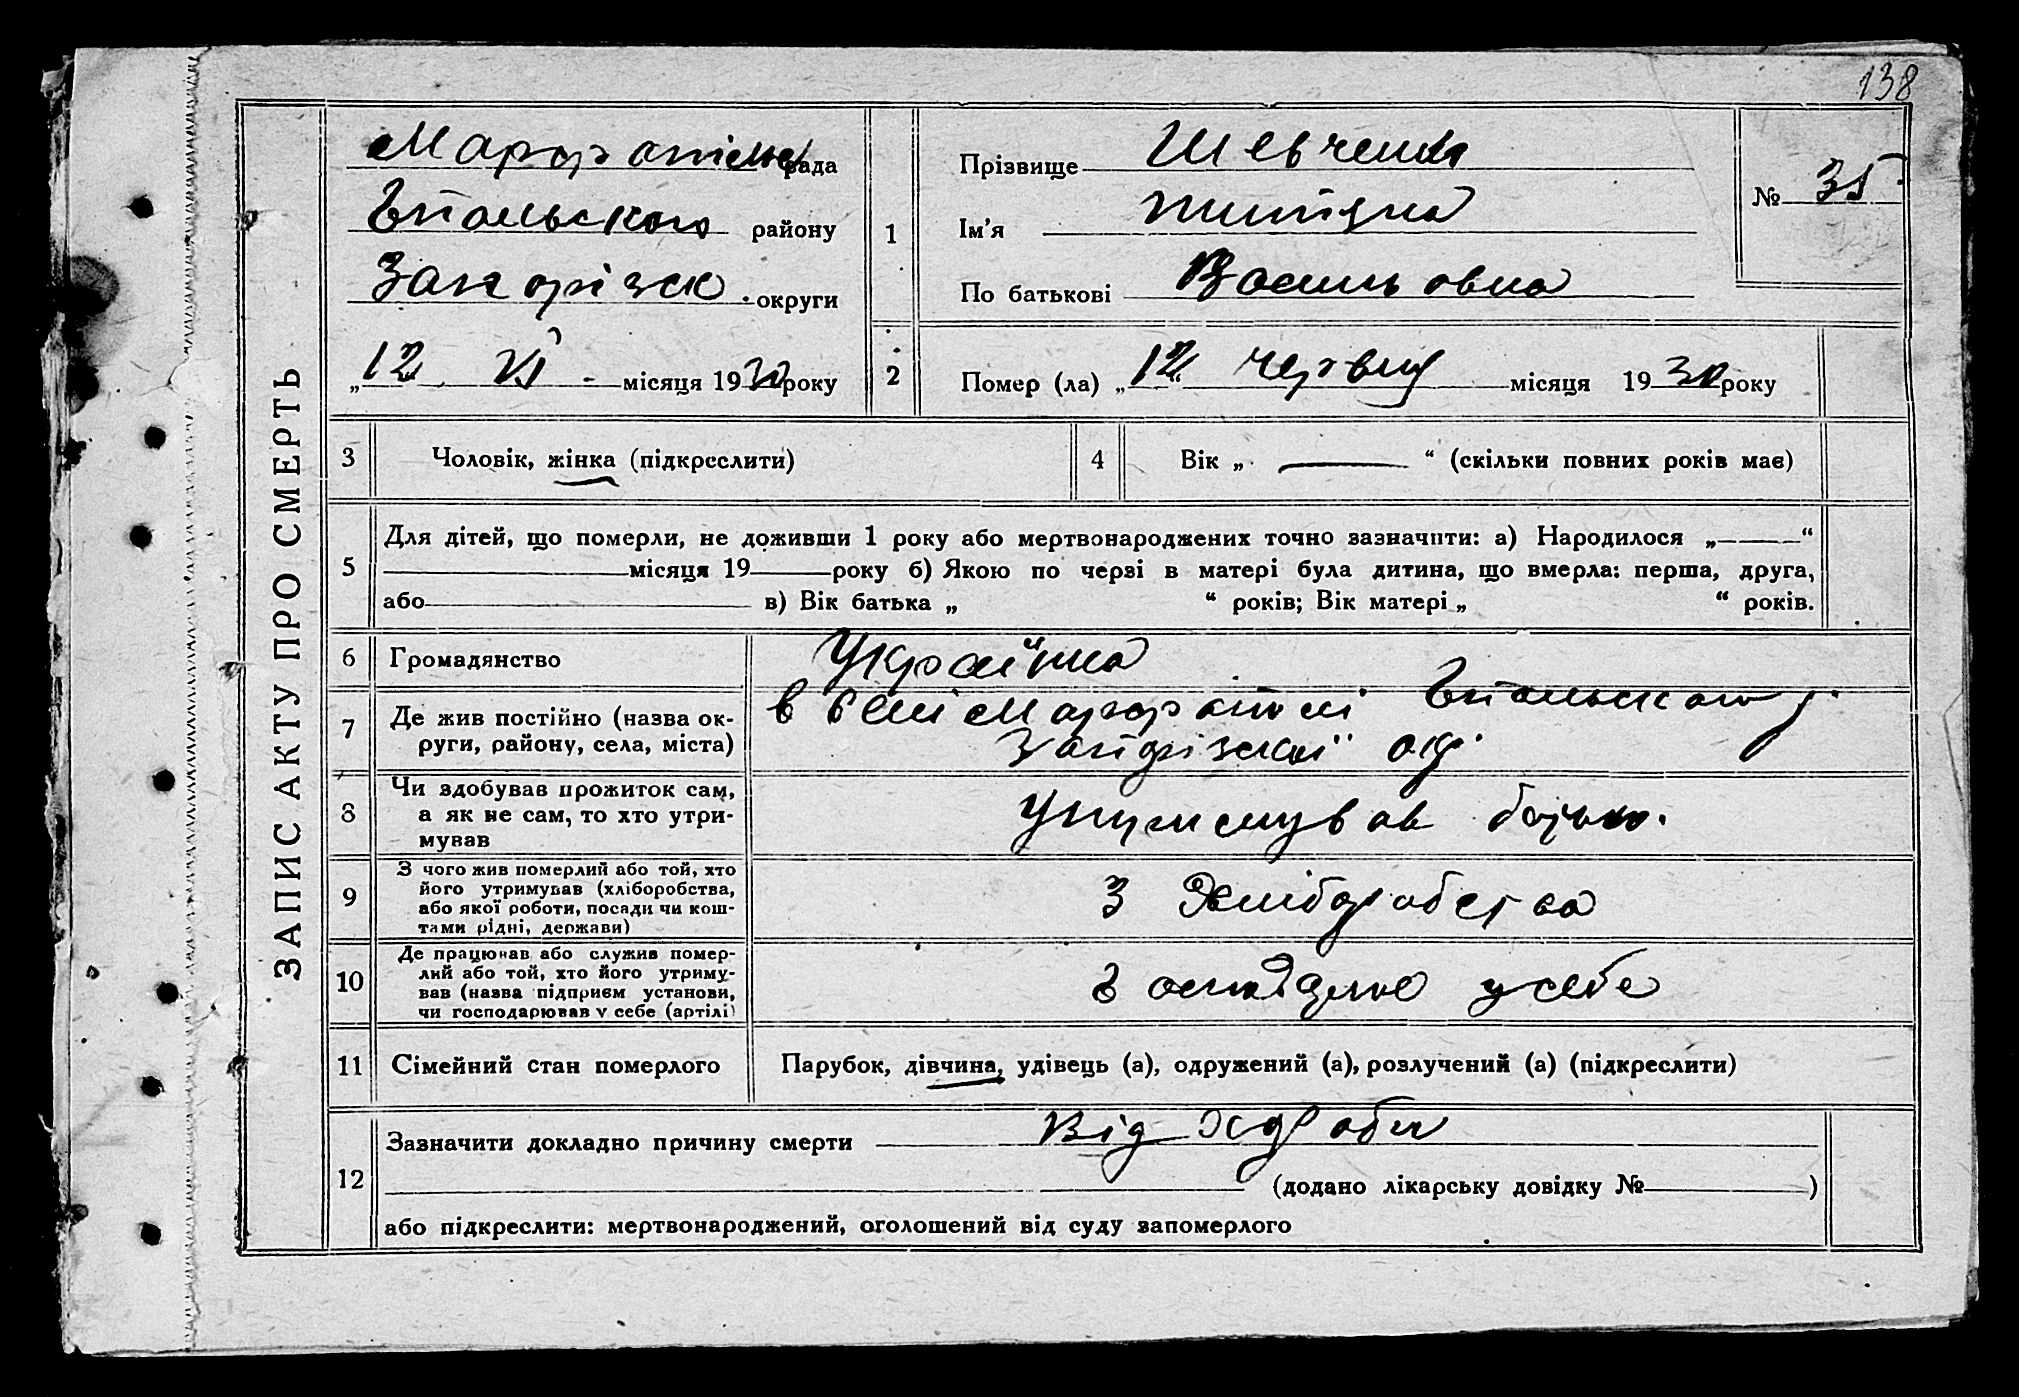 138
ЗАПИС АКТУ ПРО СМЕРТЬ
рада
району
Запорізск. округи
„12" VI місяця 1930 року
1
Прізвище Шевченко
Ім'я
По батькові Васильовна
№ 35
2
Помер (ла) „12" червня місяця 1930 року
3 Чоловік, жінка (підкреслити)
4 Вік „ — " (скільки повних років має)
5 Для дітей, що померли, не доживши 1 року або мертвонароджених точно зазначити: а) Народилося „ "
місяця 19 року б) Якою по черзі в матері була дитина, що вмерла: перша, друга,
або в) Вік батька „ " років; Вік матері „ " років.
6 Громадянство Українка
7 Де жив постійно (назва ок-
руги, району, села, міста)
в
Запорізької окр.
8 Чи здобував прожиток сам,
а як не сам, то хто утри-
мував
утримував батько.
9 З чого жив померлий або той, хто
його утримував (хліборобства,
або якої роботи, посади чи кош-
тами рідні, держави)
З Хліборобства
10 Де працював або служив помер-
лий або той, хто його утриму-
вав (назва підприєм установи,
чи господарював у себе (артілі)
у себе
11 Сімейний стан померлого Парубок, дівчина, удівець (а), одружений (а), розлучений (а) (підкреслити)
12 Зазначити докладно причину смерти Від хдроби
(додано лікарську довідку № )
або підкреслити: мертвонароджений, оголошений від суду запомерлого